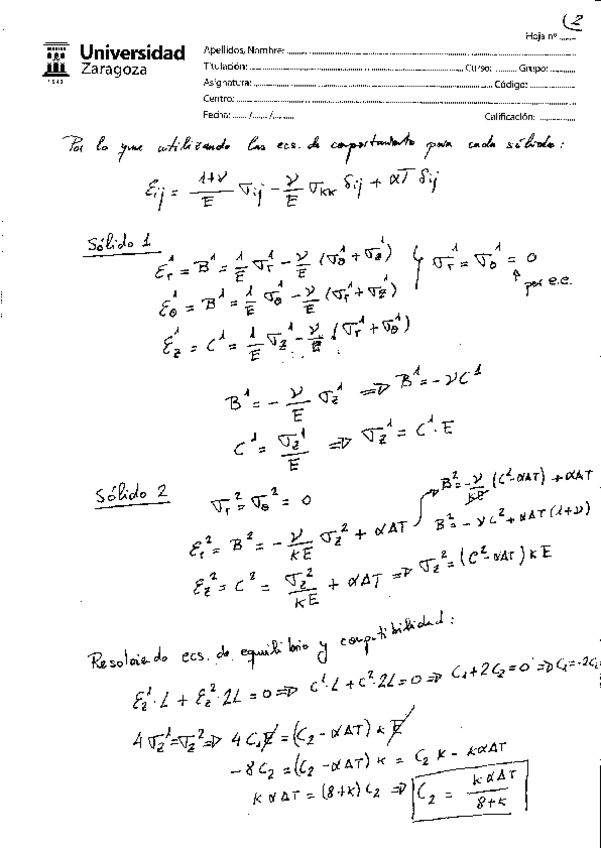 (2
Hoja nº ........
Universidad
Zaragoza
1542
Apellidos, Nombre: ........
Titulación: ........ Curso: ........ Grupo: ........
Asignatura: ........ Código: ........
Centro: ........
Fecha: ...... / ...... / ...... Calificación: ........
Por lo que utilizando las ecs. de comportamiento para cada sólido:
εij = (1+ν)/E σij - ν/E σkk δij + αT δij
Sólido 1
εr¹ = B¹ = 1/E σr¹ - ν/E (σθ¹ + σz¹) } σr¹ = σθ¹ = 0
εθ¹ = B¹ = 1/E σθ¹ - ν/E (σr¹ + σz¹) ↑ por e.e.
εz¹ = C¹ = 1/E σz¹ - ν/E (σr¹ + σθ¹)
B¹ = - ν/E σz¹ ⇒ B¹ = -νC¹
C¹ = σz¹/E ⇒ σz¹ = C¹·E
Sólido 2 σr² = σθ² = 0
B² = -ν/kE (C²-αΔT) + αΔT
εr² = B² = - ν/kE σz² + αΔT B² = -νC² + αΔT(1+ν)
εz² = C² = σz²/kE + αΔT ⇒ σz² = (C²-αΔT) kE
Resolviendo ecs. de equilibrio y compatibilidad:
εz¹·L + εz²·2L = 0 ⇒ C¹·L + C²·2L = 0 ⇒ C₁+2C₂ = 0 ⇒ C₁=-2C₂
4σz¹=σz² ⇒ 4C₁E = (C₂ - αΔT) k E
-8C₂ = (C₂ - αΔT) k = C₂ k - kαΔT
kαΔT = (8+k) C₂ ⇒ C₂ = kαΔT/(8+k)